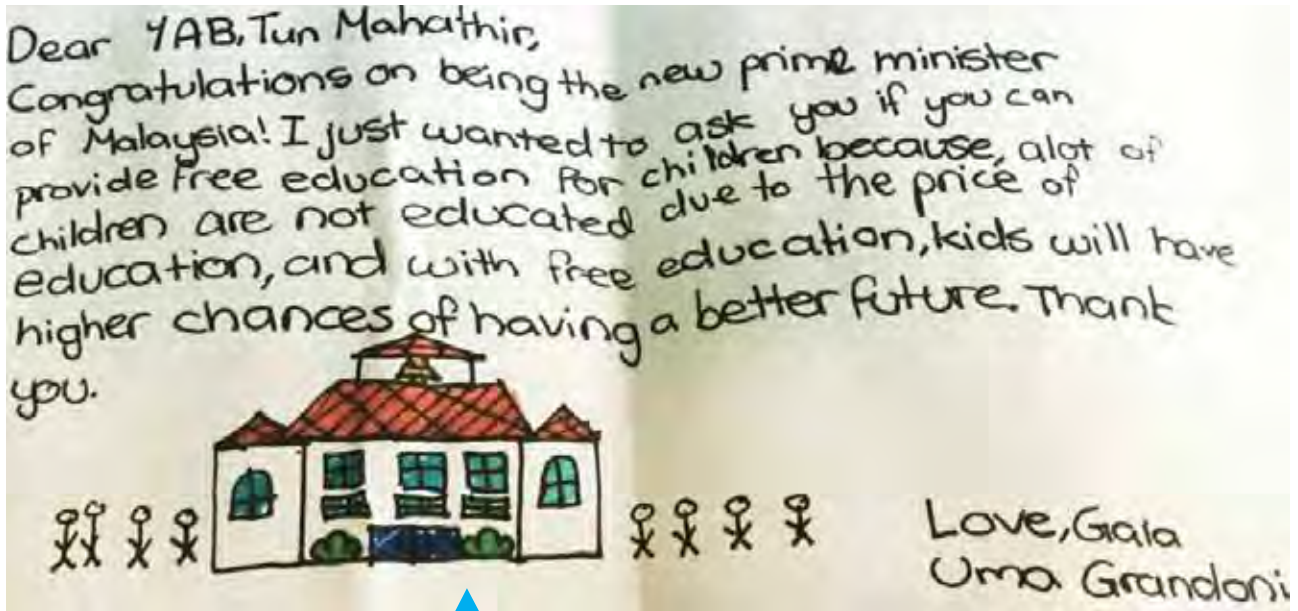 Dear YAB, Tun Mahathir,
Congratulations on being the new prime minister
of Malaysia! I just wanted to ask you if you can
provide free education for children because, alot of
children are not educated due to the price of
education, and with free education, kids will have
higher chances of having a better future. Thank
you.
Love, Gaia
Uma Grandoni